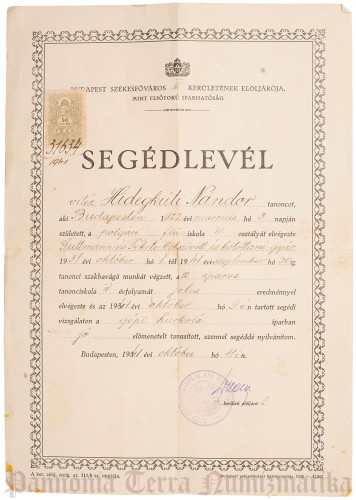 BUDAPEST SZÉKESFŐVÁROS KERÜLETÉNEK ELÖLJÁRÓJA,
MINT ELSŐFOKÚ IPARHATÓSÁG
31634
1941
SEGÉDLEVÉL
vitéz Hidegkúti Nándor tanoncot,
aki Budapesten 1922 évi március hó 3 napján
született, a polgári fiú iskola 4 osztályát elvégezte
1938 évi október hó 1 től 1941 évi szeptember hó 30 ig
tanonci szakbavágó munkát végzett, a iparos
tanonciskola évfolyamát jeles eredménnyel
elvégezte és az 1941 évi október hó 9 én tartott segédi
vizsgálaton a gépi iparban
jó előmenetelt tanusított, ezennel segéddé nyilvánítom.
Budapesten, 1941 évi október hó 11 én.
kerületi elöljáró
Pannonia Terra Numizmatika